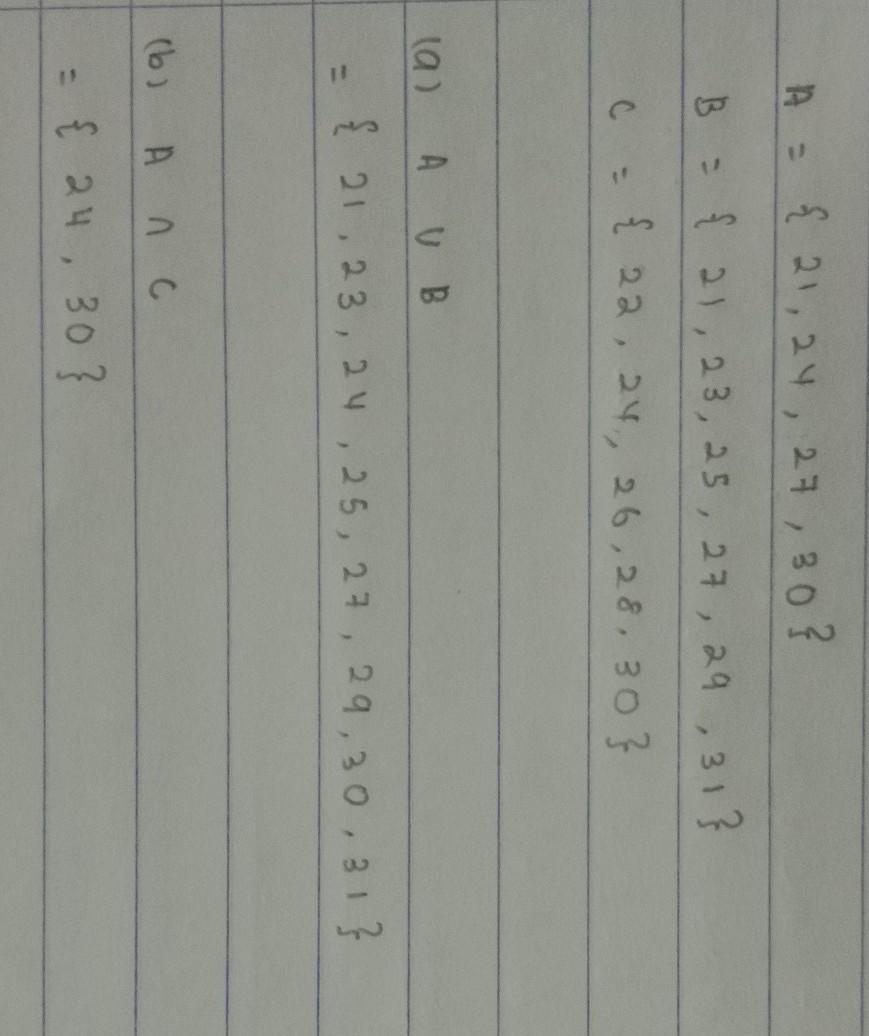 A = { 21, 24, 27, 30 }
B = { 21, 23, 25, 27, 29, 31 }
C = { 22, 24, 26, 28, 30 }
(a) A ∪ B
= { 21, 23, 24, 25, 27, 29, 30, 31 }
(b) A ∩ C
= { 24, 30 }